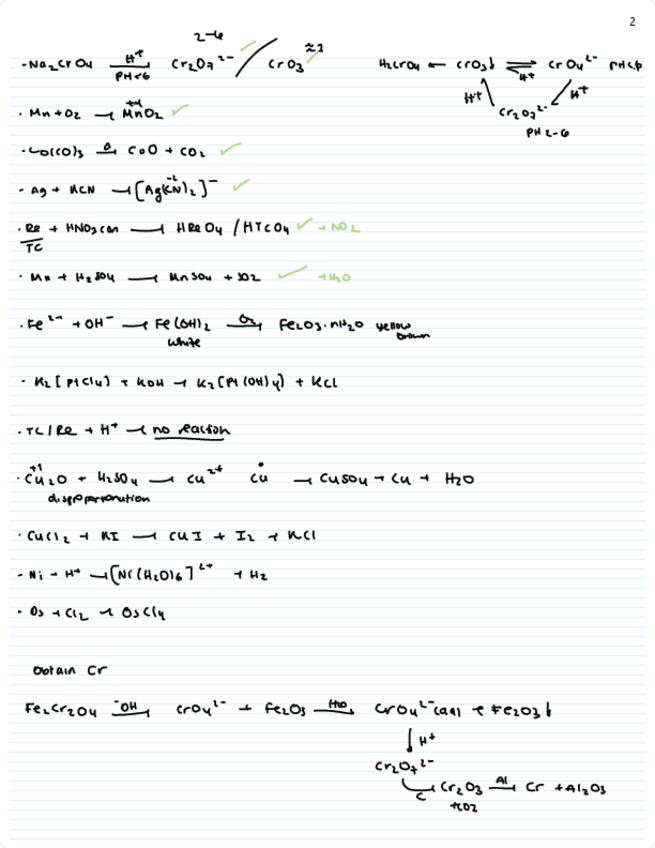 2
2-6
- Na2CrO4 —H+ / PH<6→ Cr2O7 2- / CrO3 ≈1
H2CrO4 ← CrO3↓ ⇌ H+ CrO4 2- PH<6
H+ H+
Cr2O7 2-
PH 2-6
· Mn + O2 → +4 MnO2 ✓
· Co(CO)3 Δ→ CoO + CO2 ✓
- Ag + KCN → [Ag(CN)2]- ✓
· Re + HNO3 con → HReO4 / HTcO4 ✓ + NO2
TC
· Mn + H2SO4 → MnSO4 + SO2 ✓ + H2O
· Fe 2+ + OH- → Fe(OH)2 O2→ Fe2O3·nH2O yellow
white brown
· K2[PtCl4] + KOH → K2[Pt(OH)4] + KCl
· TC/Re + H+ → no reaction
· +1 Cu2O + H2SO4 → Cu2+ Cu° → CuSO4 + Cu + H2O
disproportionation
· CuCl2 + KI → CuI + I2 + KCl
- Ni + H+ → [Ni(H2O)6]2+ + H2
· Os + Cl2 → OsCl4
Obtain Cr
Fe2Cr2O4 -OH→ CrO4 2- + Fe2O3 H2O→ CrO4 2-(aq) + Fe2O3↓
↓H+
Cr2O7 2-
C→ Cr2O3 Al→ Cr + Al2O3
+CO2